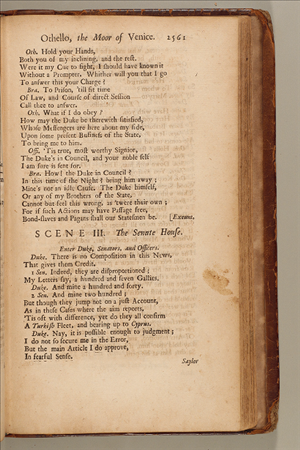 Othello, the Moor of Venice. 2561
Oth. Hold your Hands,
Both you of my inclining, and the rest.
Were it my Cue to fight, I should have known it
Without a Prompter. Whither will you that I go
To answer this your Charge?
Bra. To Prison, 'till fit time
Of Law, and Course of direct Session
Call thee to answer.
Oth. What if I do obey?
How may the Duke be therewith satisfied,
Whose Messengers are here about my side,
Upon some present Business of the State,
To bring me to him.
Offi. 'Tis true, most worthy Signior,
The Duke's in Council, and your noble self
I am sure is sent for.
Bra. How! the Duke in Council?
In this time of the Night? bring him away;
Mine's not an idle Cause. The Duke himself,
Or any of my Brothers of the State,
Cannot but feel this wrong, as 'twere their own;
For if such Actions may have Passage free,
Bond-slaves and Pagans shall our Statesmen be. [Exeunt.
SCENE III. The Senate House.
Enter Duke, Senators, and Officers.
Duke. There is no Composition in this News,
That gives them Credit.
1 Sen. Indeed, they are disproportioned;
My Letters say, a hundred and seven Gallies.
Duke. And mine a hundred and forty.
2 Sen. And mine two hundred;
But though they jump not on a just Account,
As in these Cases where the aim reports,
'Tis oft with difference, yet do they all confirm
A Turkish Fleet, and bearing up to Cyprus.
Duke. Nay, it is possible enough to judgment;
I do not so secure me in the Error,
But the main Article I do approve,
In fearful Sense.
Saylor